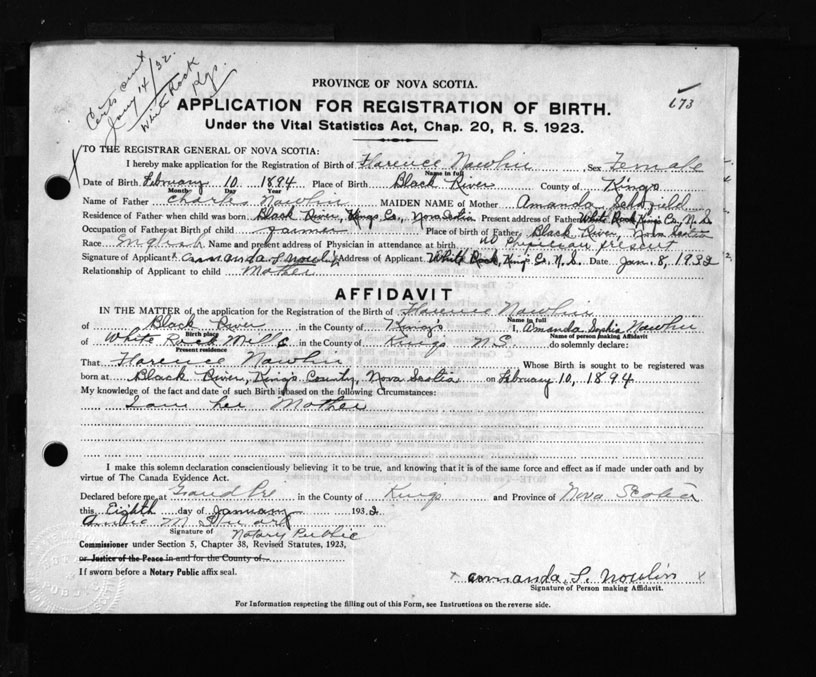 Certs sent
Jany 14/32.
White Rock
Kgs.
673
PROVINCE OF NOVA SCOTIA.
APPLICATION FOR REGISTRATION OF BIRTH.
Under the Vital Statistics Act, Chap. 20, R. S. 1923.
TO THE REGISTRAR GENERAL OF NOVA SCOTIA:
I hereby make application for the Registration of Birth of Florence Nowlin Sex Female
Name in full
Date of Birth February 10 1894 Place of Birth Black River County of Kings
Month Day Year
Name of Father Charles Nowlin MAIDEN NAME of Mother Amanda Schofield
Residence of Father when child was born Black River, Kings Co., Nova Scotia Present address of Father White Rock Kings Co, N. S
Occupation of Father at Birth of child farmer Place of birth of Father Black River, Nova Scotia
Race English Name and present address of Physician in attendance at birth no physician present
Signature of Applicant Amanda S Nowlin Address of Applicant White Rock, Kings Co. N. S. Date Jan. 8, 1932
Relationship of Applicant to child Mother
AFFIDAVIT
IN THE MATTER of the application for the Registration of the Birth of Florence Nowlin
Name in full
of Black River, in the County of Kings I, Amanda Sophia Nowlin
Birth place Name of person making Affidavit
of White Rock Mills, in the County of Kings N.S. do solemnly declare:
Present residence
That Florence Nowlin Whose Birth is sought to be registered was
born at Black River, Kings County, Nova Scotia on February 10, 1894
My knowledge of the fact and date of such Birth is based on the following Circumstances:
I am her Mother
I make this solemn declaration conscientiously believing it to be true, and knowing that it is of the same force and effect as if made under oath and by
virtue of The Canada Evidence Act.
Declared before me at Grand Pre in the County of Kings and Province of Nova Scotia
this Eighth day of January 1932
Annie M Stuart
Signature of Notary Public
Commissioner under Section 5, Chapter 38, Revised Statutes, 1923,
or Justice of the Peace in and for the County of
If sworn before a Notary Public affix seal.
x Amanda, S. Nowlin x
Signature of Person making Affidavit.
For Information respecting the filling out of this Form, see Instructions on the reverse side.